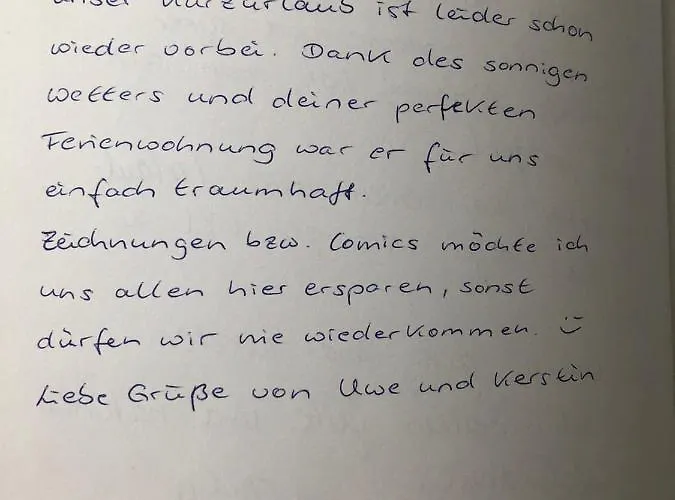 unser Kurzurlaub ist leider schon
wieder vorbei. Dank des sonnigen
Wetters und deiner perfekten
Ferienwohnung war er für uns
einfach traumhaft.
Zeichnungen bzw. Comics möchte ich
uns allen hier ersparen, sonst
dürfen wir nie wiederkommen. :)
Liebe Grüße von Uwe und Kerstin